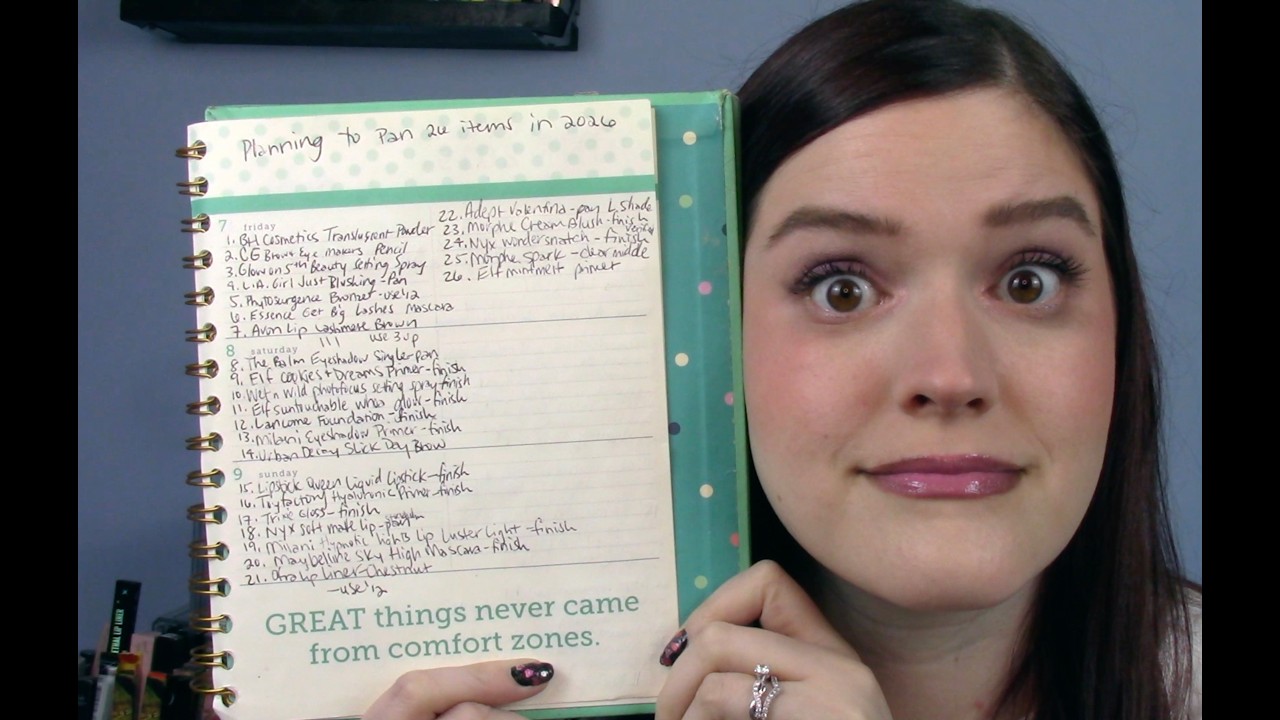 Planning to Pan 26 items in 2026
7 friday
1. BH Cosmetics Translucent Powder
2. CG Brown Eye Makers Pencil
3. Glow on 5th Beauty Setting Spray
4. L.A. Girl Just Blushing - Pan
5. Physicians Bronzer - use 1/2
6. Essence Get Big Lashes Mascara
7. Avon Lip Cashmere Brown
||| use 3 up
8 saturday
8. The Balm Eyeshadow Single - pan
9. Elf Cookies + Dreams Primer - finish
10. Wet n Wild photofocus setting spray finish
11. Elf suntouchable whoa glow - finish
12. Lancome Foundation - finish
13. Milani Eyeshadow Primer - finish
14. Urban Decay Slick Day Brow
9 sunday
15. Lipstick Queen Liquid Lipstick - finish
16. Tryfactory Hyaluronic Primer - finish
17. Trixe Gloss - finish
18. Nyx soft matte lip -
19. Milani Hypnotic Lights Lip Luster Light - finish
20. Maybelline Sky High Mascara - finish
21. Ofra lip liner - Chestnut
- use 1/2
22. Adept Valentina - pan 1 shade
23. Morphe Cream Blush - finish
24. Nyx wondersnatch - finish
25. Morphe spark - clear middle
26. Elf mint melt primer
GREAT things never came
from comfort zones.